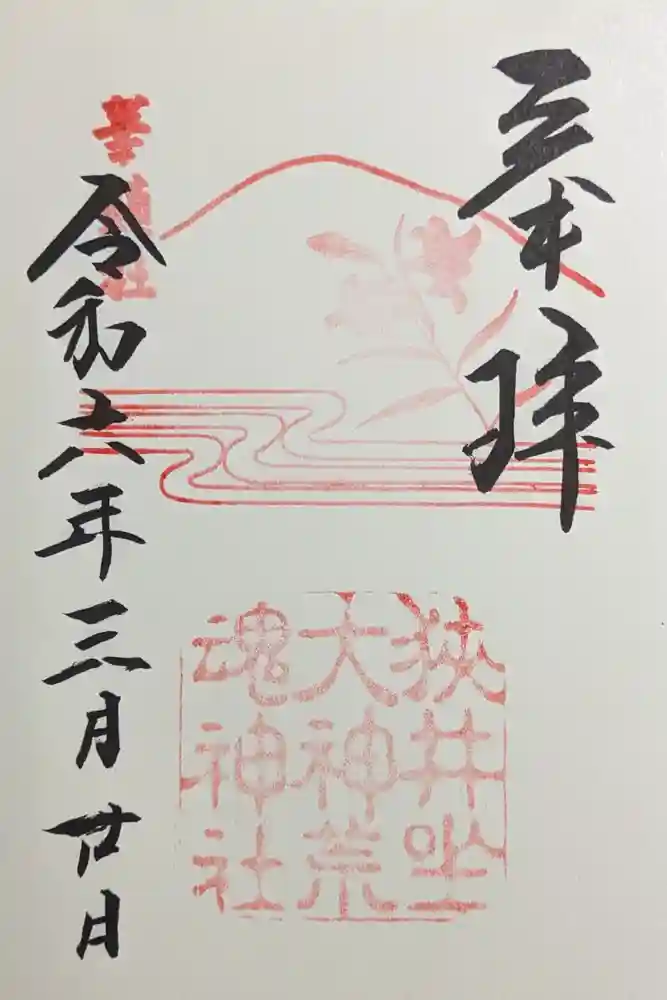 奉拝
狭井坐
大神荒
魂神社
華鎮社
令和六年三月廿日